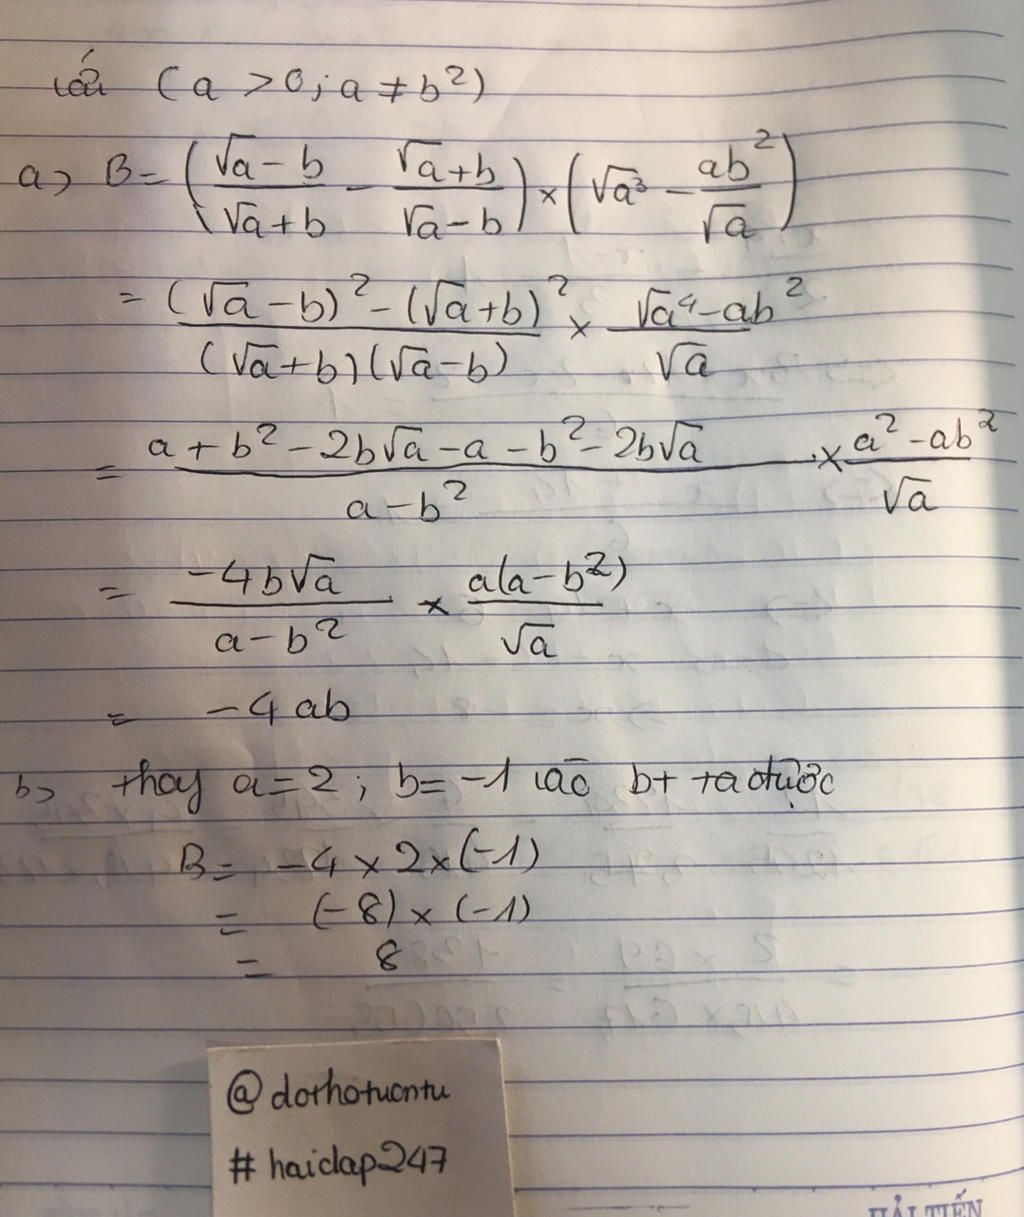 với (a > 0; a ≠ b²)
a> B = ((√a - b)/(√a + b) - (√a + b)/(√a - b)) × (√a³ - ab²/√a)
= ((√a - b)² - (√a + b)²)/((√a + b)(√a - b)) × (√a⁴ - ab²)/√a
= (a + b² - 2b√a - a - b² - 2b√a)/(a - b²) × (a² - ab²)/√a
= (-4b√a)/(a - b²) × a(a - b²)/√a
= -4ab
b> thay a = 2; b = -1 vào bt ta được
B = -4 × 2 × (-1)
= (-8) × (-1)
= 8
@dothotuantu
# haidap247
HẢI TIẾN